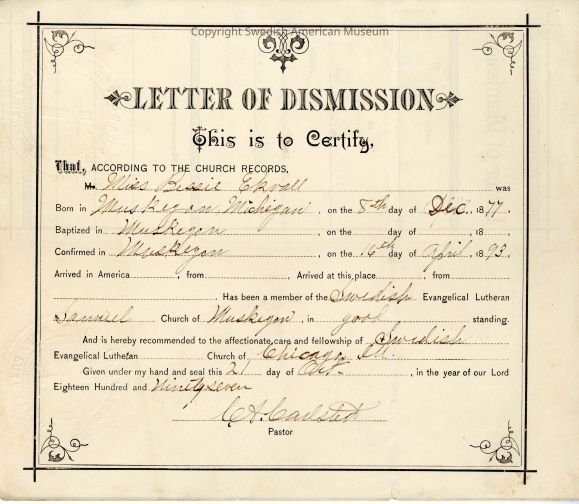 Copyright Swedish American Museum
LETTER OF DISMISSION
This is to Certify,
That, ACCORDING TO THE CHURCH RECORDS,
Mr. Miss Bessie Ekvall was
Born in Muskegon Michigan, on the 8th day of Dec. 1877.
Baptized in Muskegon, on the day of, 18
Confirmed in Muskegon, on the 16th day of April, 1893.
Arrived in America, from Arrived at this place, from
Has been a member of the Swedish Evangelical Lutheran
Samuel Church of Muskegon, in good standing.
And is hereby recommended to the affectionate care and fellowship of Swedish
Evangelical Lutheran Church of Chicago, Ill.
Given under my hand and seal this 21 day of Oct., in the year of our Lord
Eighteen Hundred and Ninety seven
C A Carlstedt
Pastor